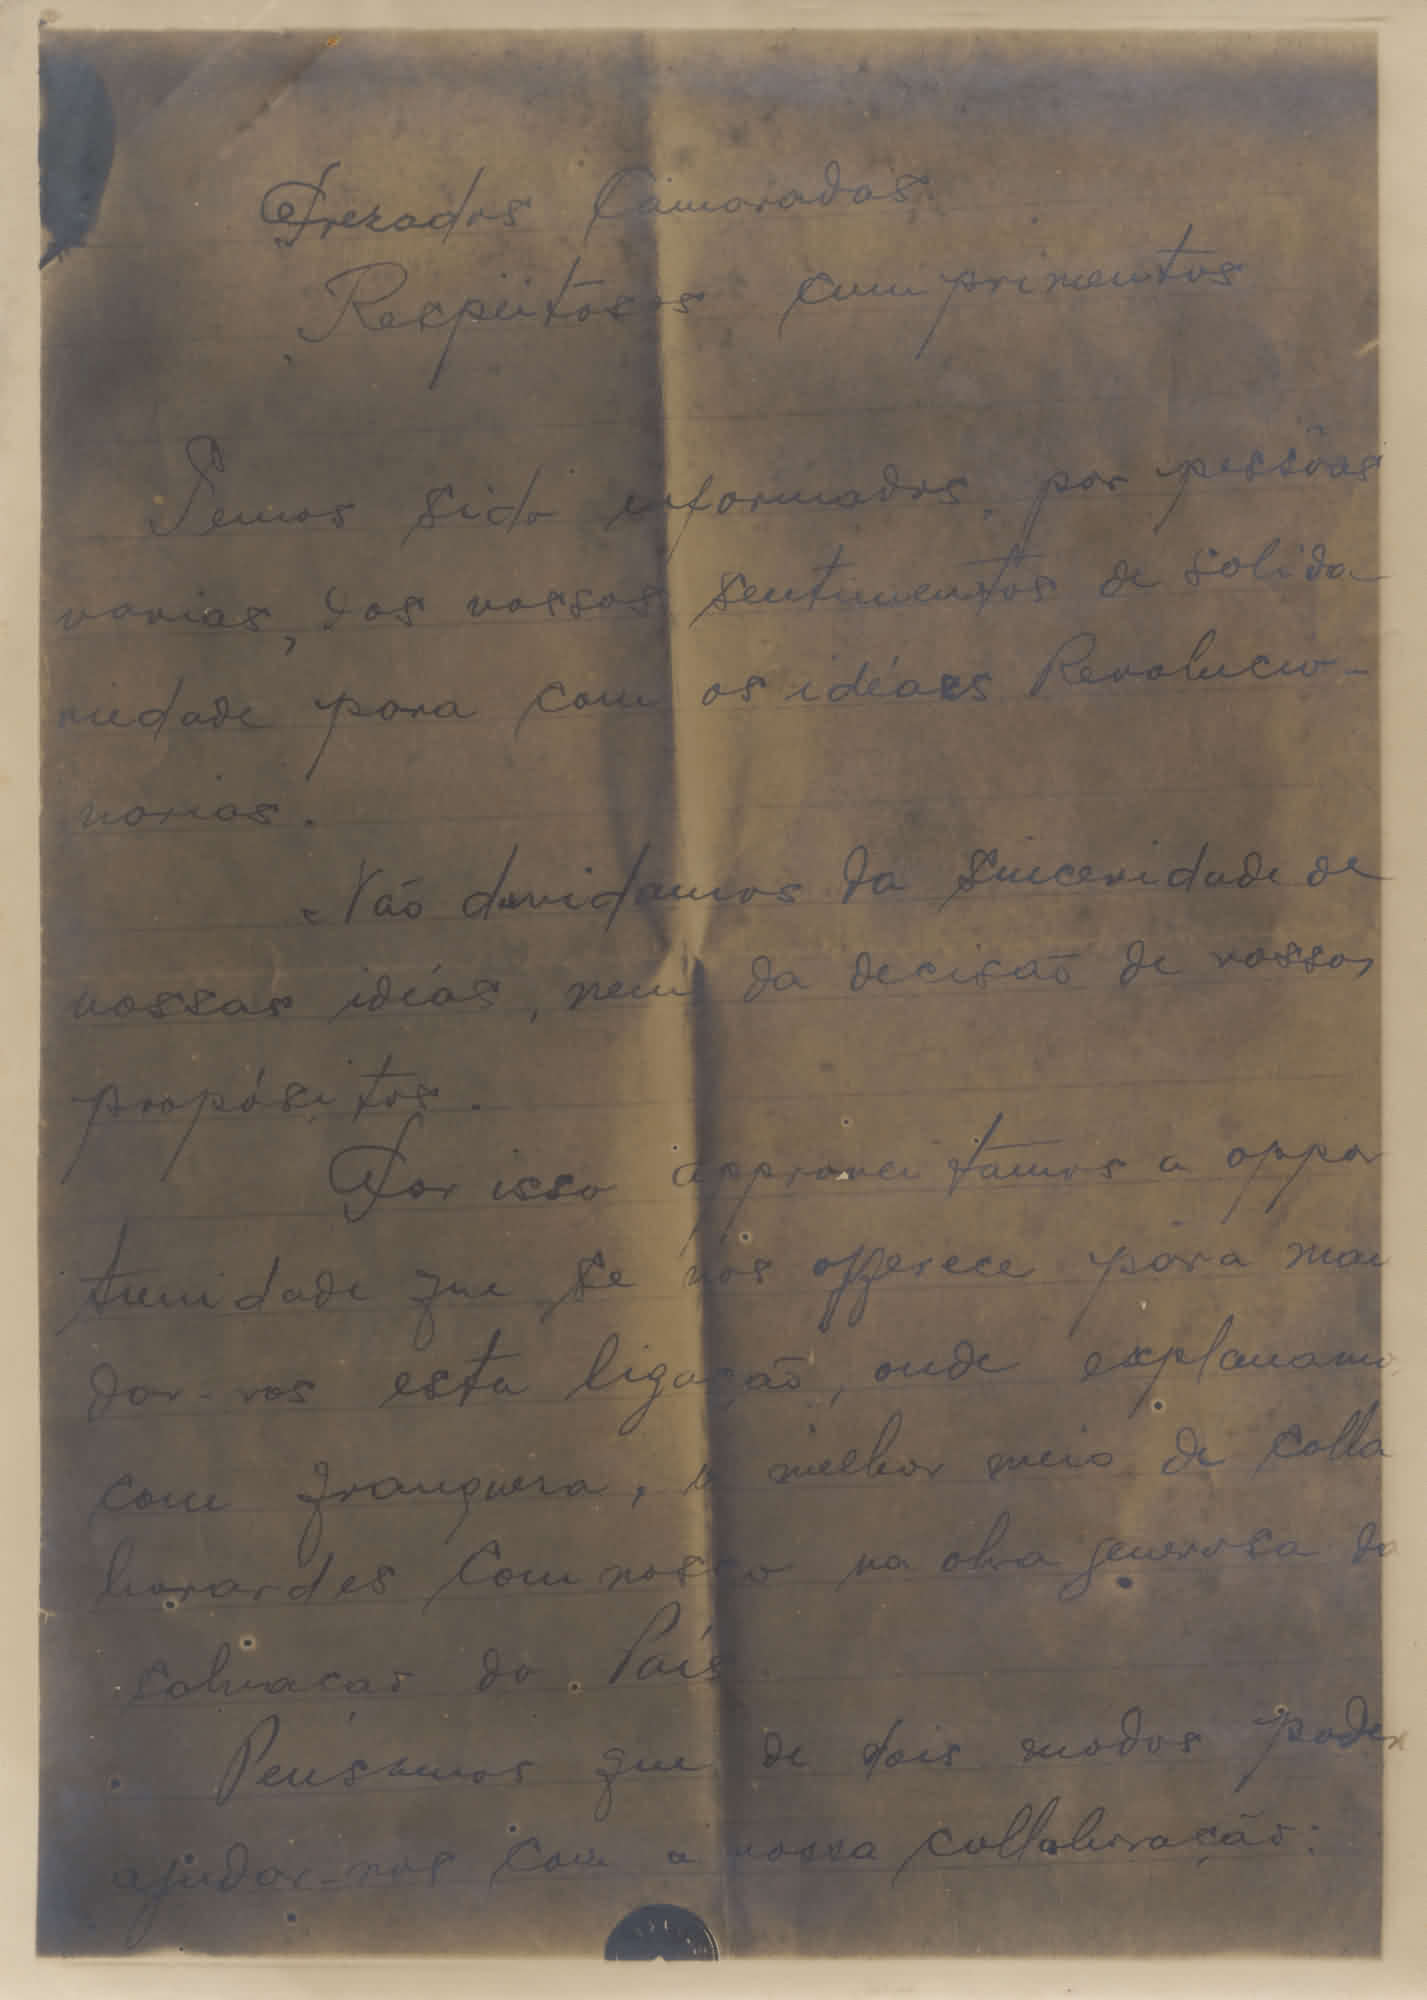 Prezados Camaradas
Respeitosos cumprimentos
Temos sido informados, por pessôas
varias, dos vossos sentimentos de solida
riedade para com os idéaes Revolucio-
narios.
Não duvidamos da sinceridade de
vossas idéas, nem da decisão de vossos
propósitos.
Por isso approveitamos a oppor
tunidade que se nos offerece para man
dar-vos esta ligação, onde explanamos
com franqueza, o melhor meio de colla
borardes comnosco na obra generosa da
salvacao do País
Pensamos que de dois modos podeis
ajudar-nos com a vossa collaboração: